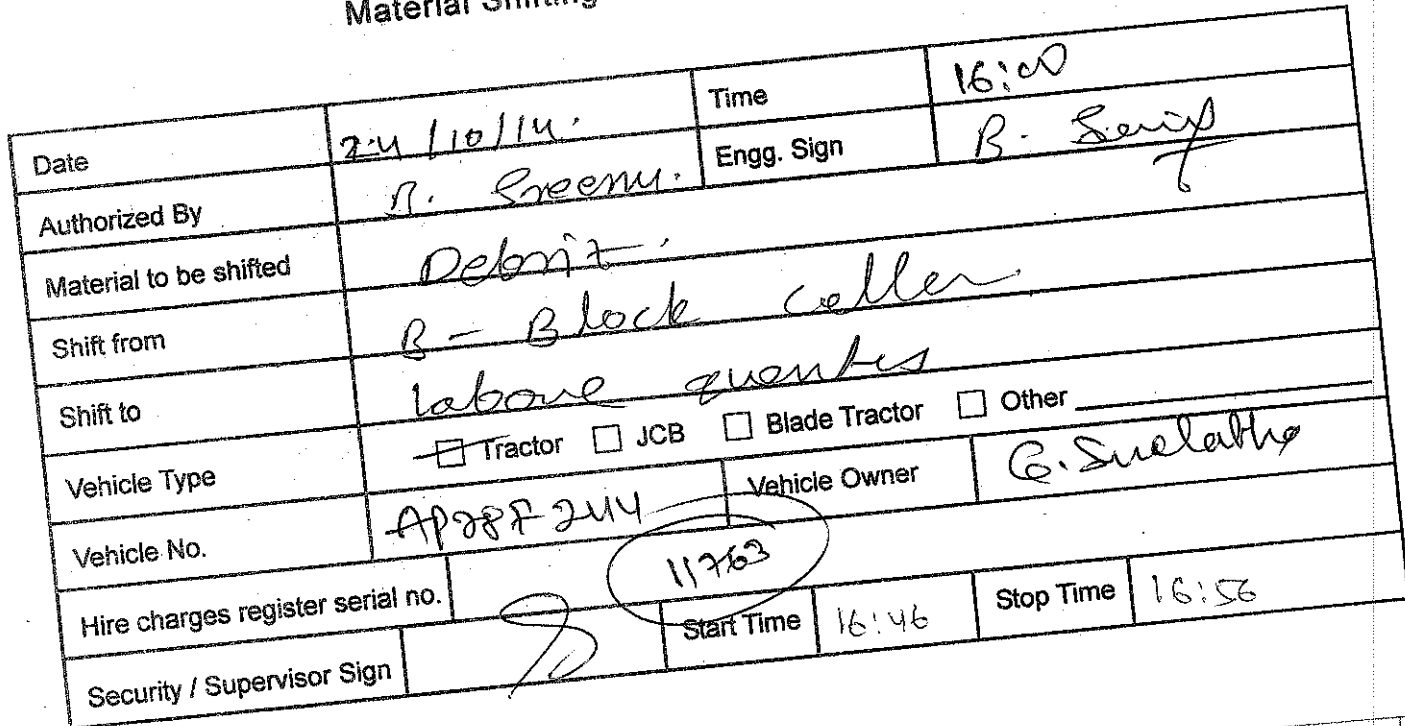 Material Shifting
Date 24/10/14. Time 16:00
Authorized By B. Sreenu. Engg. Sign B.
Material to be shifted
Shift from B - Block celler
Shift to labour quarters
Vehicle Type ☐ Tractor ☐ JCB ☐ Blade Tractor ☐ Other
Vehicle No. Vehicle Owner G.
Hire charges register serial no. 11763
Security / Supervisor Sign Start Time 16:46 Stop Time 16:56